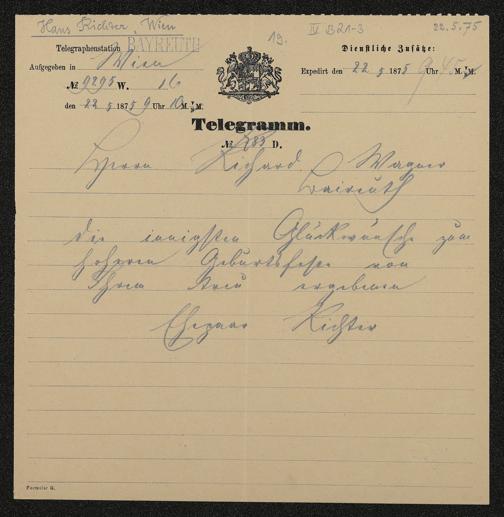 Hans Richter, Wien
19.
IV B21-3
22.5.75
Telegraphenstation BAYREUTH
Aufgegeben in Wien
№ 9295 W. 16
den 22 5 1875 9 Uhr 10 M. M.
Dienstliche Zusätze:
Expedirt den 22 5 1875 9 Uhr 45 M. M.
Telegramm.
№ 283 D.
Herrn Richard Wagner
Baireuth
Die innigsten Glückwünsche zum
hohen Geburtsfeste von
Ihrem treu ergebenen
Ehepaar Richter
Formular G.